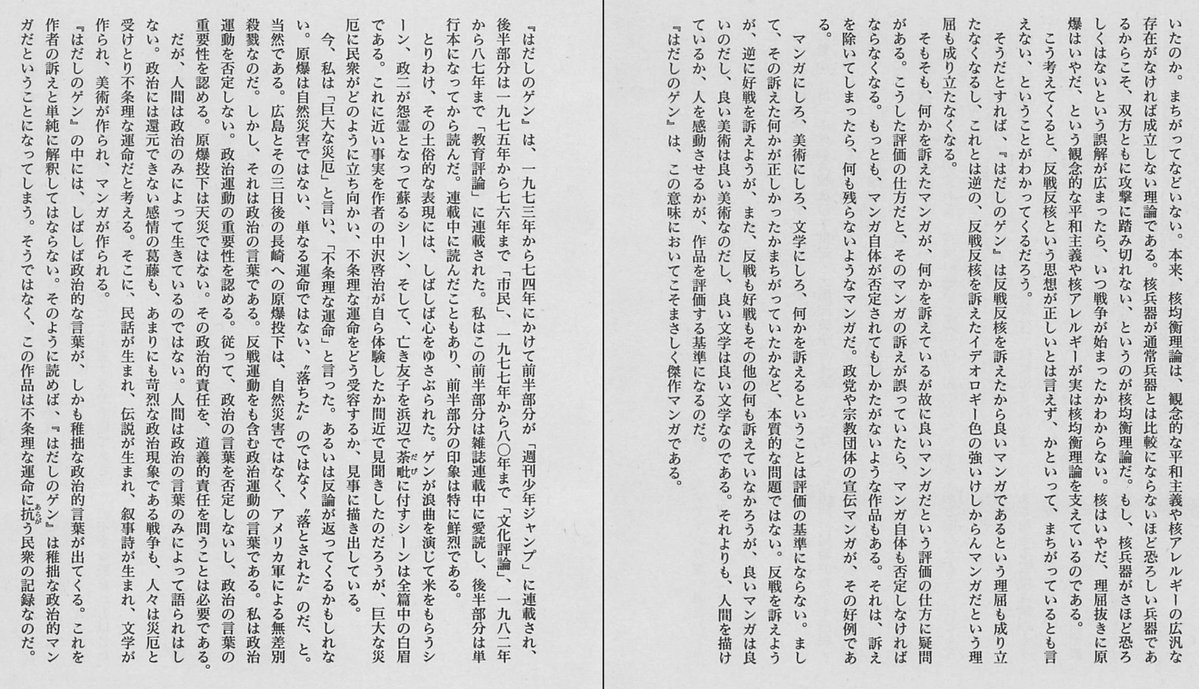 いたのか。まちがってなどいない。本来、核均衡理論は、観念的な平和主義や核アレルギーの広汎な
存在がなければ成立しない理論である。核兵器が通常兵器とは比較にならないほど恐ろしい兵器であ
るからこそ、双方ともに攻撃に踏み切れない、というのが核均衡理論だ。もし、核兵器がさほど恐ろ
しくはないという誤解が広まったら、いつ戦争が始まったかわからない。核はいやだ、理屈抜きに原
爆はいやだ、という観念的な平和主義や核アレルギーが実は核均衡理論を支えているのである。
こう考えてくると、反戦反核という思想が正しいとは言えず、かといって、まちがっているとも言
えない、ということがわかってくるだろう。
そうだとすれば、『はだしのゲン』は反戦反核を訴えたから良いマンガであるという理屈も成り立
たなくなるし、これとは逆の、反戦反核を訴えたイデオロギー色の強いけしからんマンガだという理
屈も成り立たなくなる。
そもそも、何かを訴えたマンガが、何かを訴えているが故に良いマンガだという評価の仕方に疑問
がある。こうした評価の仕方だと、そのマンガの訴えが誤っていたら、マンガ自体も否定しなければ
ならなくなる。もっとも、マンガ自体が否定されてもしかたがないような作品もある。それは、訴え
を除いてしまったら、何も残らないようなマンガだ。政党や宗教団体の宣伝マンガが、その好例であ
る。
マンガにしろ、美術にしろ、文学にしろ、何かを訴えるということは評価の基準にならない。まし
て、その訴えた何かが正しかったかまちがっていたかなど、本質的な問題ではない。反戦を訴えよう
が、逆に好戦を訴えようが、また、反戦も好戦もその他の何も訴えていなかろうが、良いマンガは良
いのだし、良い美術は良い美術なのだし、良い文学は良い文学なのである。それよりも、人間を描け
ているか、人を感動させるかが、作品を評価する基準になるのだ。
『はだしのゲン』は、この意味においてこそまさしく傑作マンガである。
『はだしのゲン』は、一九七三年から七四年にかけて前半部分が「週刊少年ジャンプ」に連載され、
後半部分は一九七五年から七六年まで「市民」、一九七七年から八〇年まで「文化評論」、一九八二年
から八七年まで「教育評論」に連載された。私はこの前半部分は雑誌連載中に愛読し、後半部分は単
行本になってから読んだ。連載中に読んだこともあり、前半部分の印象は特に鮮烈である。
とりわけ、その土俗的な表現には、しばしば心をゆさぶられた。ゲンが浪曲を演じて米をもらうシ
ーン、政二が怨霊となって蘇るシーン、そして、亡き友子を浜辺で荼毗に付すシーンは全篇中の白眉
である。これに近い事実を作者の中沢啓治が自ら体験したか間近で見聞きしたのだろうが、巨大な災
厄に民衆がどのように立ち向かい、不条理な運命をどう受容するか、見事に描き出している。
今、私は「巨大な災厄」と言い、「不条理な運命」と言った。あるいは反論が返ってくるかもしれな
い。原爆は自然災害ではない、単なる運命ではない、〝落ちた〟のではなく〝落とされた〟のだ、と。
当然である。広島とその三日後の長崎への原爆投下は、自然災害ではなく、アメリカ軍による無差別
殺戮なのだ。しかし、それは政治の言葉である。反戦運動をも含む政治運動の言葉である。私は政治
運動を否定しない。政治運動の重要性を認める。従って、政治の言葉を否定しないし、政治の言葉の
重要性を認める。原爆投下は天災ではない。その政治的責任を、道義的責任を問うことは必要である。
だが、人間は政治のみによって生きているのではない。人間は政治の言葉のみによって語られはし
ない。政治には還元できない感情の葛藤も、あまりにも苛烈な政治現象である戦争も、人々は災厄と
受けとり不条理な運命だと考える。そこに、民話が生まれ、伝説が生まれ、叙事詩が生まれ、文学が
作られ、美術が作られ、マンガが作られる。
『はだしのゲン』の中には、しばしば政治的な言葉が、しかも稚拙な政治的言葉が出てくる。これを
作者の訴えと単純に解釈してはならない。そのように読めば、『はだしのゲン』は稚拙な政治的マン
ガだということになってしまう。そうではなく、この作品は不条理な運命に抗う民衆の記録なのだ。